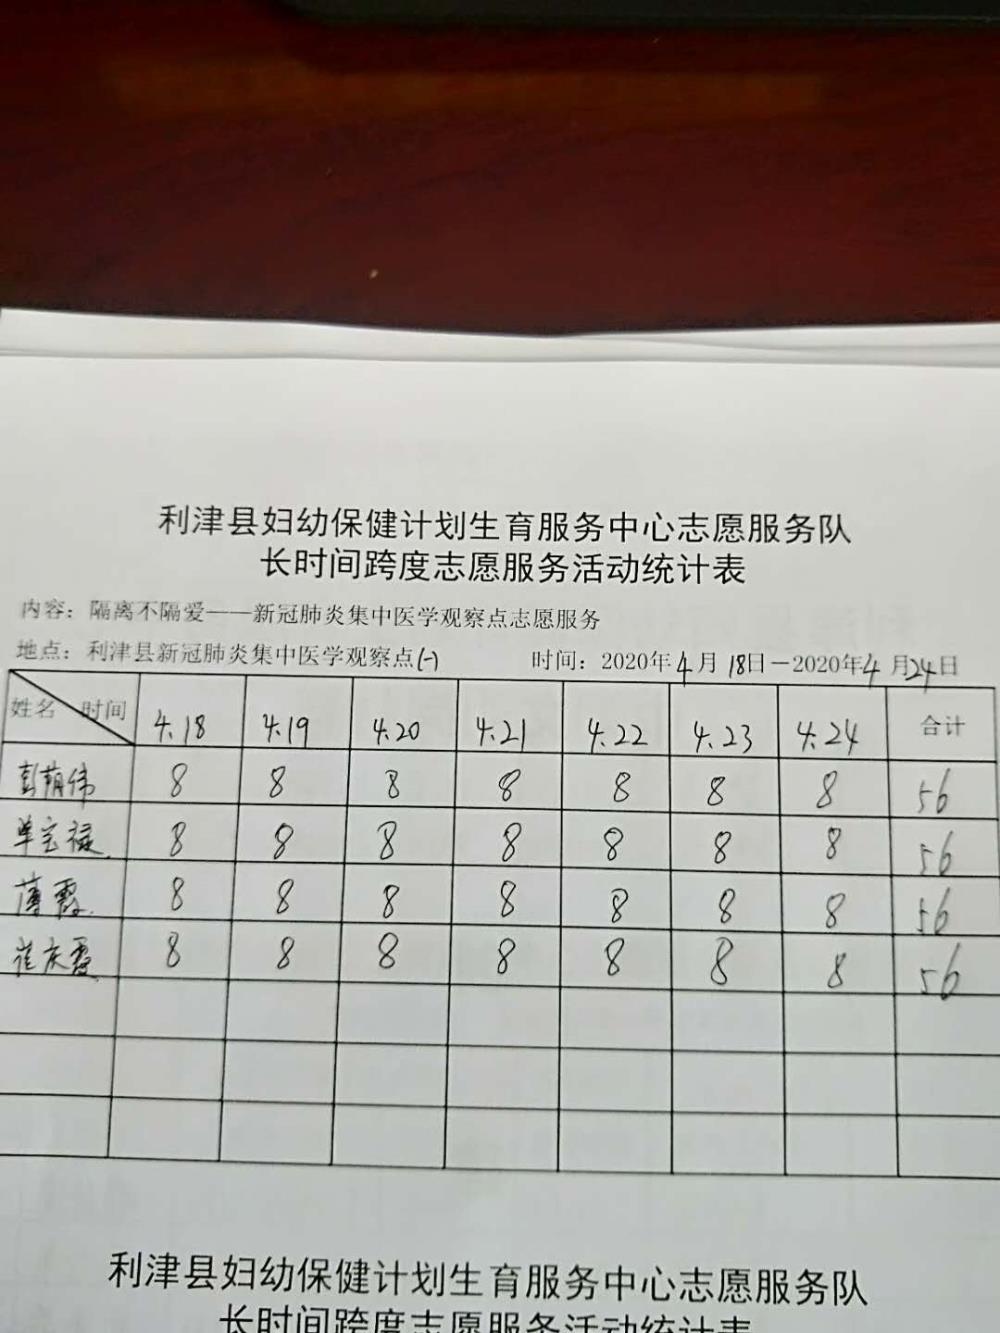 利津县妇幼保健计划生育服务中心志愿服务队
长时间跨度志愿服务活动统计表
内容：隔离不隔爱——新冠肺炎集中医学观察点志愿服务
地点：利津县新冠肺炎集中医学观察点(一) 时间：2020年4月18日－2020年4月24日
姓名 时间 4.18 4.19 4.20 4.21 4.22 4.23 4.24 合计
彭 伟 8 8 8 8 8 8 8 56
单宝禄 8 8 8 8 8 8 8 56
薄霞 8 8 8 8 8 8 8 56
崔庆霞 8 8 8 8 8 8 8 56
利津县妇幼保健计划生育服务中心志愿服务队
长时间跨度志愿服务活动统计表